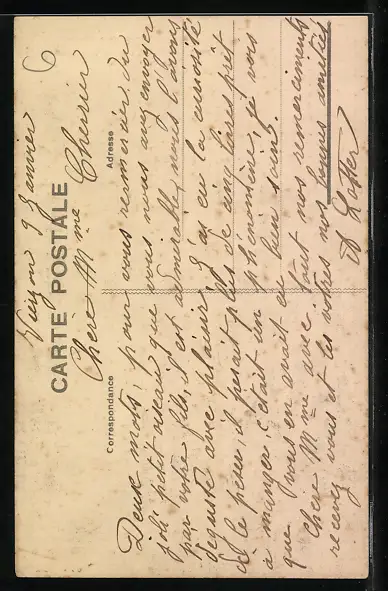 Vierzon 9 Janvier
6
CARTE POSTALE
Chère Mme Chevrier
Correspondance
Adresse
Deux mots, pour vous remercier du
joli petit oiseau que vous nous avez envoyer
par votre fils, il est admirable, nous l'avons
déguste avec plaisir. J'ai eu la curiosité
de le peser, il pesait plus de cinq livres prêt
à manger, c'était un phénomène, je vois
que vous en avait eu bien soins.
Chère Mme avec tout nos remerciments
recevez vous et les votres nos bonnes amitiés